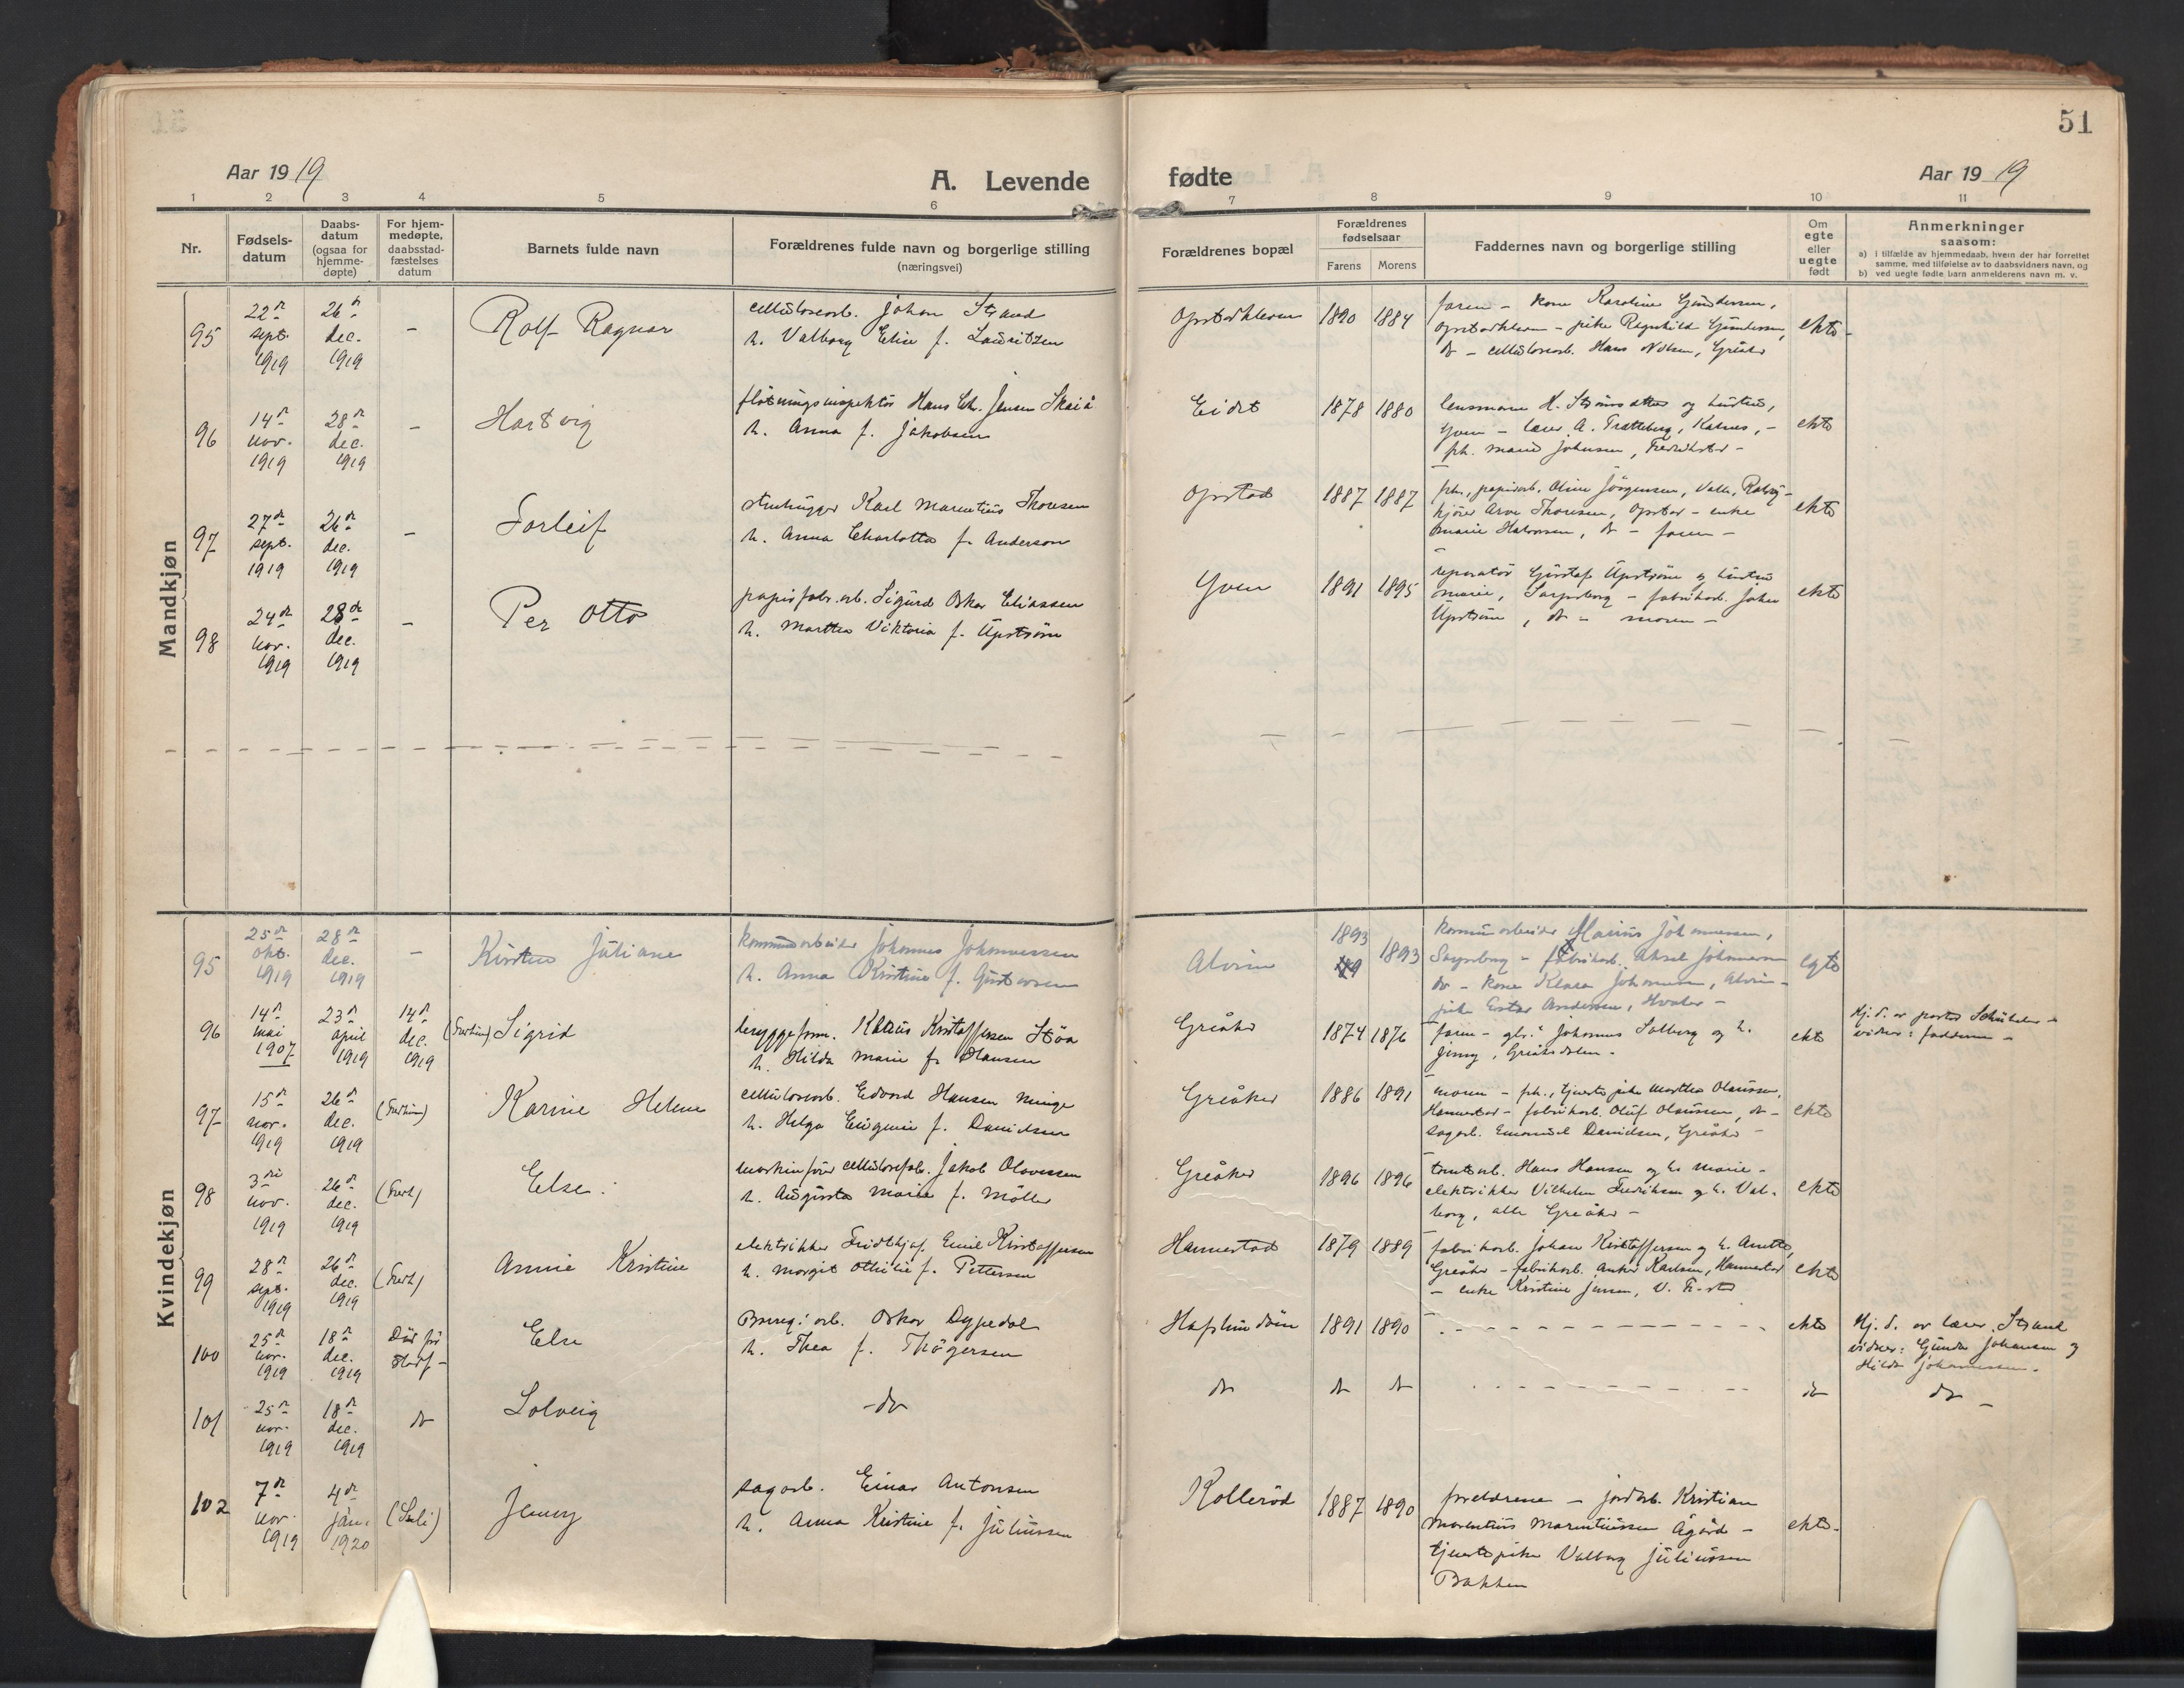 51
Aar 1919
A. Levende fødte
Aar 1919
1 2 3 4 5 6 7 8 9 10 11
Nr.
Fødsels-
datum
Daabs-
datum
(ogsaa for
hjemme-
døpte)
For hjem-
medøpte,
daabsstad-
fæstelses
datum
Barnets fulde navn
Forældrenes fulde navn og borgerlige stilling
(næringsvei)
Forældrenes bopæl
Forældrenes
fødselsaar
Farens Morens
Faddernes navn og borgerlige stilling
Om
egte
eller
uegte
født
Anmerkninger
saasom:
a) i tilfælde av hjemmedaab, hvem der har forrettet
samme, med tilføielse av to daabsvidners navn, og
b) ved uegte fødte barn anmelderens navn m. v.
Mandkjøn
95
22de
sept.
1919
26de
dec.
1919
-
Rolf Ragnar
cellulosearb. Johan Strand
h. Valborg Elise f. Lauritzen
Opstadkleven
1890 1884
faren - kone Karoline Gundersen,
Opstadkleven - pike Ragnhild Gundersen,
do - cellulosearb. Hans Nilsen, Greåker
ekte
96
14de
nov.
1919
28de
dec.
1919
-
Hartvig
fløtningsinspektør Hans Chr. Jensen Skaiå
h. Anna f. Jakobsen
Eidet
1878 1880
lensmann H. Strømsæther og hustru,
Yven - lærer A. Trætteberg, Kalnes, -
frk. Marie Johnsen, Fredrikstad -
ekte
97
27de
sept.
1919
26de
dec.
1919
-
Torleif
stenhugger Karl Marentius Thoresen
h. Anna Charlotte f. Anderson
Opstad
1887 1887
frk., papirarb. Oline Jørgensen, Valle, Rolvsøy -
kjører Arve Thoresen, Opstad - enke
Marie Halvorsen, do - faren -
ekte
98
24de
nov.
1919
28de
dec.
1919
-
Per Otto
papirfabr.arb. Sigurd Oskar Eliassen
h. Marthea Viktoria f. Upstrøm
Yven
1891 1895
reparatør Gustaf Upstrøm og hustru
Marie, Sarpsborg - fabrikarb. Johan
Upstrøm, do - moren -
ekte
Kvindekjøn
95
25de
okt.
1919
28de
dec.
1919
-
Kirsten Juliane
kommunearbeider Johannes Johannessen
h. Anna Kristine f. Gustavsen
Alvim
1893
1893
Kommunearbeider Marius Johannessen,
Sarpsborg - fabrikarb. Aksel Johannesen
do - kone Klara Johannesen, Alvim -
pike Ester Andersen, Hvaler -
egte
96
14de
mai
1907
23de
april
1919
14de
dec.
1919
Sigrid
bryggeform. Kataus Kristoffersen Stöa
h. Hilda Marie f. Hansen
Greåker
1874 1876
faren - gbr. Johannes Solberg og h.
Jenny, Greåkerdalen -
ekte
Hj. d. av pastor
vidner: fadderne -
97
15de
nov.
1919
26de
dec.
1919
Karine Helene
cellulosearb. Edvard Hansen Minge
h. Helga Eugenie f. Danielsen
Greåker
1886 1891
moren - frk., tjenestepike Marthea Olaussen,
Hannestad - fabrikarb. Oluf Olaussen, do -
sagarb. Emanuel Danielsen, Greåker -
ekte
98
3die
nov.
1919
26de
dec.
1919
Else
maskinfører cellulosefab. Jakob Olavessen
h. Augusta Marie f. Møller
Greåker
1896 1896
tomtearb. Hans Hansen og h. Marie -
elektriker Vilhelm Fredriksen og h. Val-
borg, alle Greåker -
ekte
99
28de
sept.
1919
26de
dec.
1919
Annie Kristine
elektriker Fridthjof Emil Kristoffersen
h. Margit Othilie f. Pettersen
Hannestad
1879 1889
fabrikarb. Johan Kristoffersen og h. Anette,
Greåker - fabrikarb. Anker Karlsen, Hannestad
- enke Kristine Jensen, V. Fr.stad
ekte
100
25de
nov.
1919
18de
dec.
1919
Död før
stadf -
Else
Bureg. arb. Oskar Dypedal
h. Thea f. Thøgersen
Hafslundsøen
1891 1890
ekte
Hj. d. av lærer Strand
vidner: Gunda Johansen og
Hilda Johannessen.
101
25de
nov.
1919
18de
dec.
1919
do
Solveig
- do -
do
do do
do
do -
102
7de
nov.
1919
4de
jan.
1920
(Soli)
Jenny
sagarb. Einar Antonsen
h. Anna Kristine f. Juliussen
Kollerød
1887 1890
forældrene - jordarb. Kristian
Marentius Marentiussen Ågård -
tjenestepike Valborg Juliussen
Bakken
ekte -